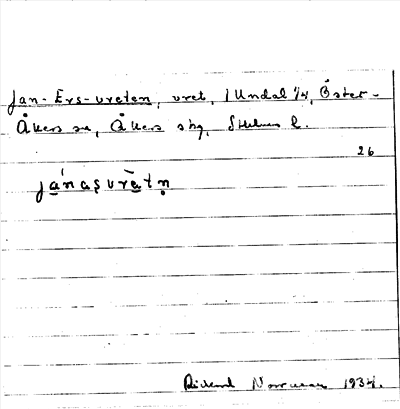 Jan-Ers-vreten, vret, 1 Undal 1/4, Öster-
Åkers sn, Åkers shg, Sthlms l.
26
jánaṣvrētṇ
Rickard Norrman 1934.